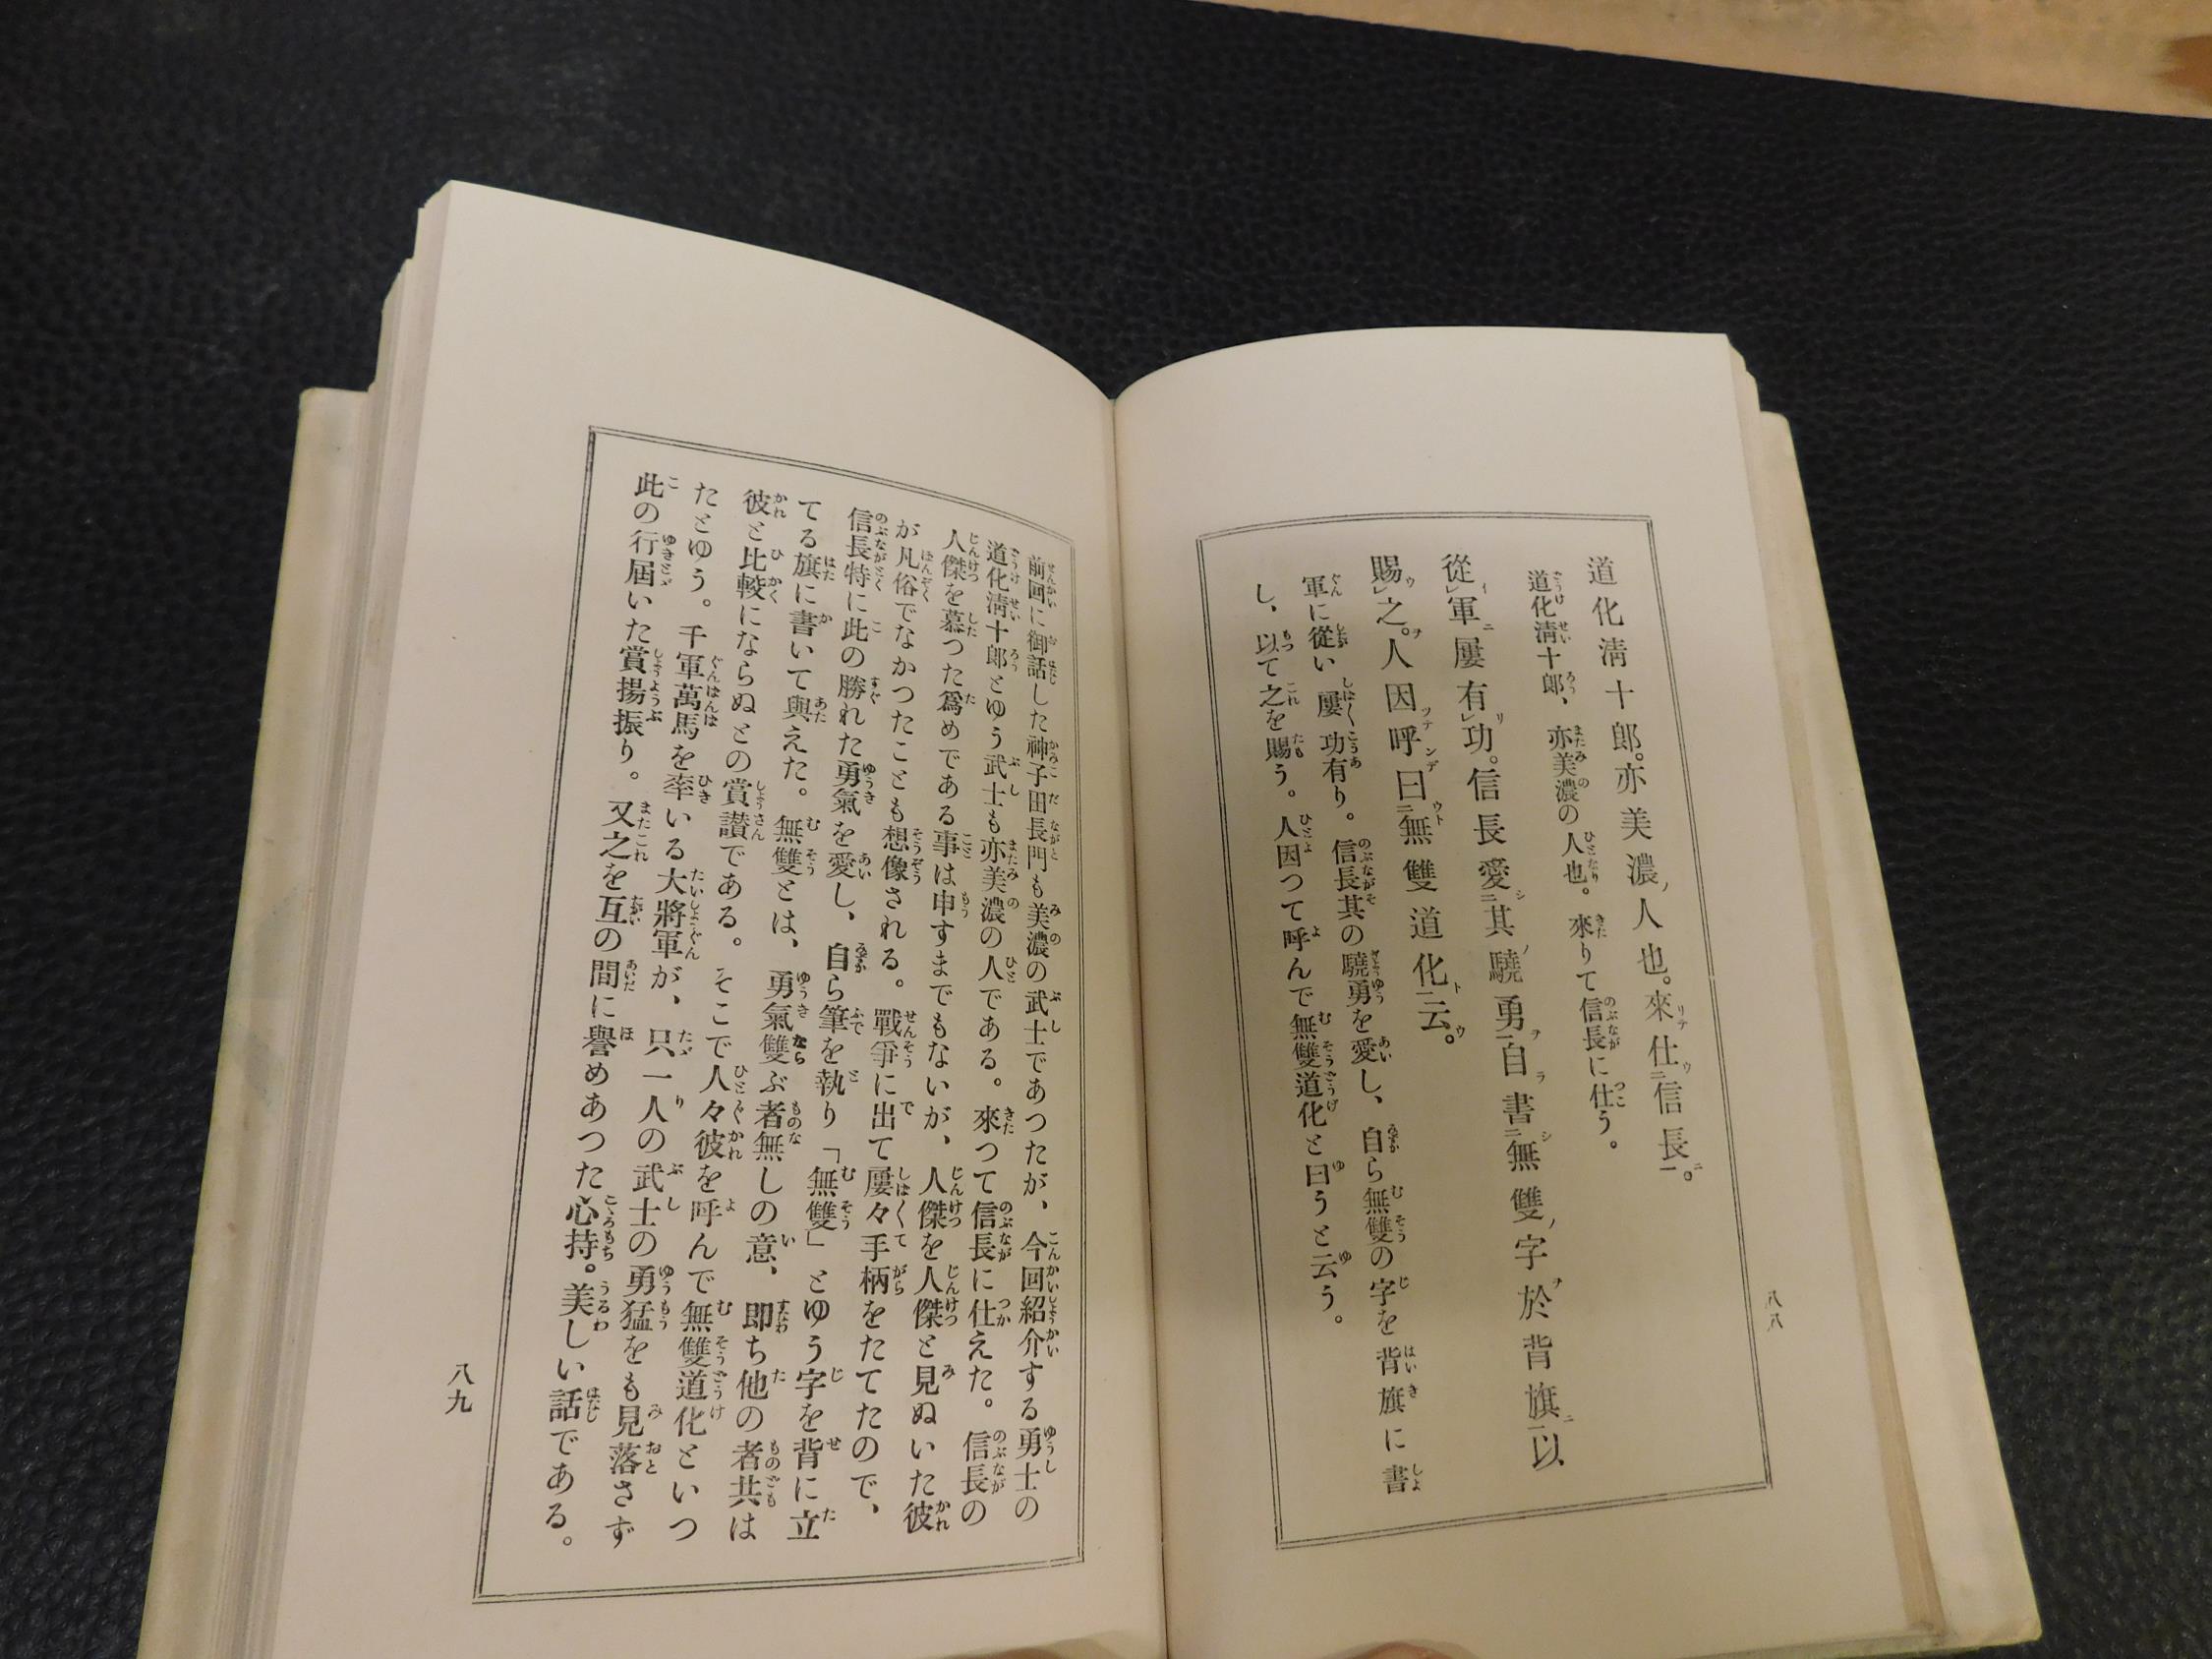 道化淸十郎。亦美濃ノ人也。來リテ仕ウ二信長ニ一。
道化淸十郎、亦美濃の人也。來りて信長に仕う。
從イレ軍ニ屢有リレ功。信長愛シ二其ノ驍勇ヲ一自ラ書シ二無雙ノ字ヲ於背旗ニ一以
賜ウレ之ヲ。人因ツテ呼ンデ曰ウト二無雙道化ト一云ウ。
軍に從い屢功有り。信長其の驍勇を愛し、自ら無雙の字を背旗に書
し、以て之を賜う。人因つて呼んで無雙道化と曰うと云う。
八八
前回に御話した神子田長門も美濃の武士であつたが、今回紹介する勇士の
道化淸十郎とゆう武士も亦美濃の人である。來つて信長に仕えた。信長の
人傑を慕つた爲めである事は申すまでもないが、人傑を人傑と見ぬいた彼
が凡俗でなかつたことも想像される。戰爭に出て屢々手柄をたてたので、
信長特に此の勝れた勇氣を愛し、自ら筆を執り「無雙」とゆう字を背に立
てる旗に書いて與えた。無雙とは、勇氣雙ぶ者無しの意、卽ち他の者共は
彼と比較にならぬとの賞讃である。そこで人々彼を呼んで無雙道化といつ
たとゆう。千軍萬馬を率いる大將軍が、只一人の武士の勇猛をも見落さず
此の行屆いた賞揚振り。又之を互の間に譽めあつた心持。美しい話である。
八九